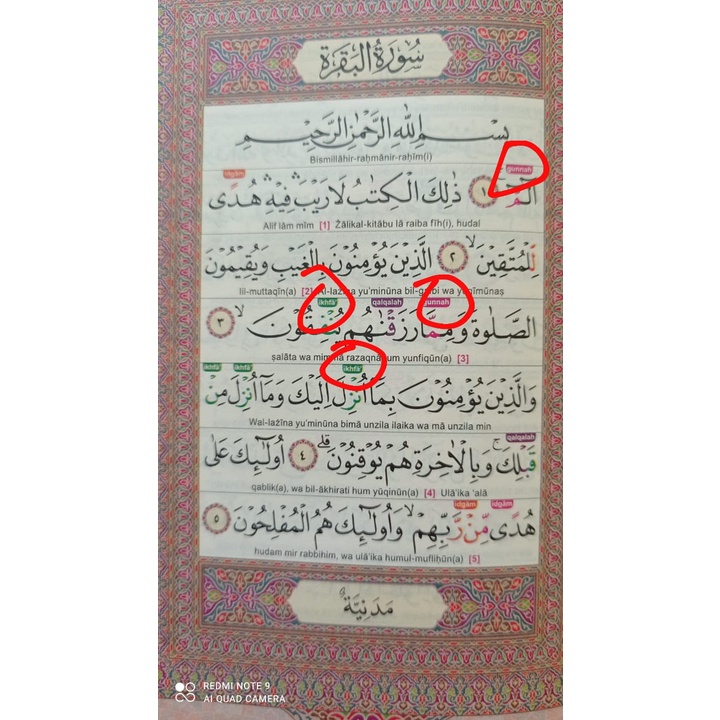 سُورَةُ الْبَقَرَةِ
بِسْمِ اللّٰهِ الرَّحْمٰنِ الرَّحِيْمِ
Bismillāhir-raḥmānir-raḥīm(i)
idgām gunnah
الٓمّٓ ۚ ١ ذٰلِكَ الْكِتٰبُ لَا رَيْبَ ۛ فِيْهِ ۛ هُدًى
Alif lām mīm [1] Żālikal-kitābu lā raiba fīh(i), hudal
لِّلْمُتَّقِيْنَ ۙ ٢ الَّذِيْنَ يُؤْمِنُوْنَ بِالْغَيْبِ وَيُقِيْمُوْنَ
lil-muttaqīn(a) [2] Al-lażīna yu'minūna bil-gaibi wa yuqīmūnaṣ
ikhfā' qalqalah gunnah
الصَّلٰوةَ وَمِمَّا رَزَقْنٰهُمْ يُنْفِقُوْنَ ۙ ٣
ṣalāta wa mimmā razaqnāhum yunfiqūn(a) [3]
ikhfā' ikhfā' ikhfā'
وَالَّذِيْنَ يُؤْمِنُوْنَ بِمَآ اُنْزِلَ اِلَيْكَ وَمَآ اُنْزِلَ مِنْ
Wal-lażīna yu'minūna bimā unzila ilaika wa mā unzila min
qalqalah
قَبْلِكَ ۚ وَبِالْاٰخِرَةِ هُمْ يُوْقِنُوْنَ ۗ ٤ اُولٰٓىِٕكَ عَلٰى
qablik(a), wa bil-ākhirati hum yūqinūn(a) [4] Ulā'ika 'alā
idgām idgām
هُدًى مِّنْ رَّبِّهِمْ ۙ وَاُولٰٓىِٕكَ هُمُ الْمُفْلِحُوْنَ ٥
hudam mir rabbihim, wa ulā'ika humul-mufliḥūn(a) [5]
مَدَنِيَّةٌ
REDMI NOTE 9
AI QUAD CAMERA